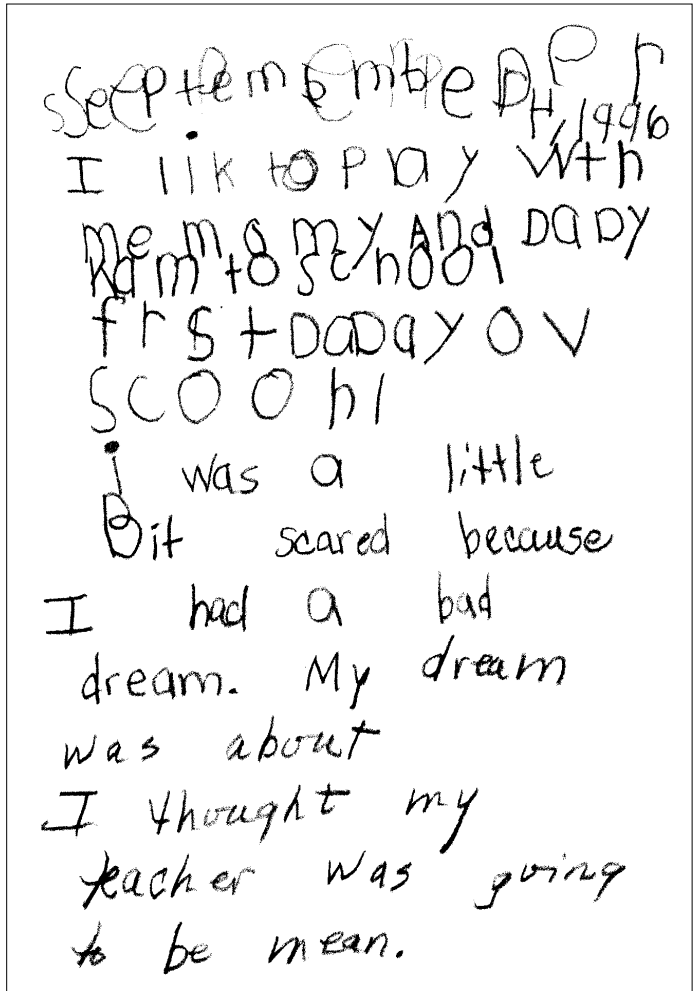 September
H, 1996
I lik to play Wth
me momy And DaDy
Kam to School
frSt DaDay OV
SCOOhl
i was a little
Bit scared because
I had a bad
dream. My dream
was about
I thought my
teacher was going
to be mean.